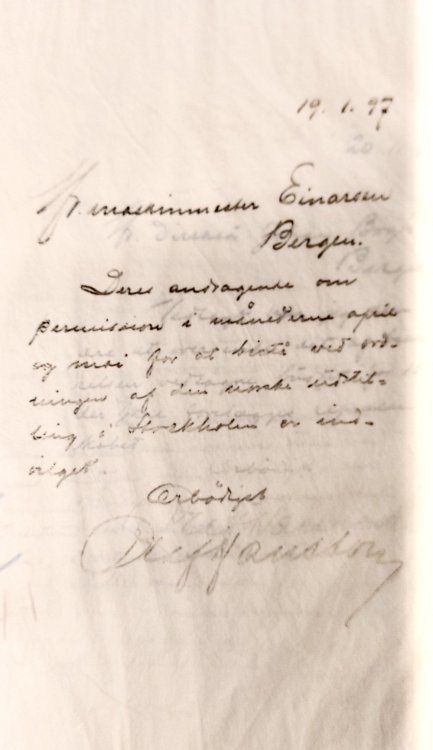 19. 1. 97
Hr. maskinmester Einarsen
Bergen.
Deres andragende om
permission i månederne april
og mai for at bistå ved ord-
ningen af den norske udstil-
ling i Stockholm er ind-
vilget.
Ærbödigst